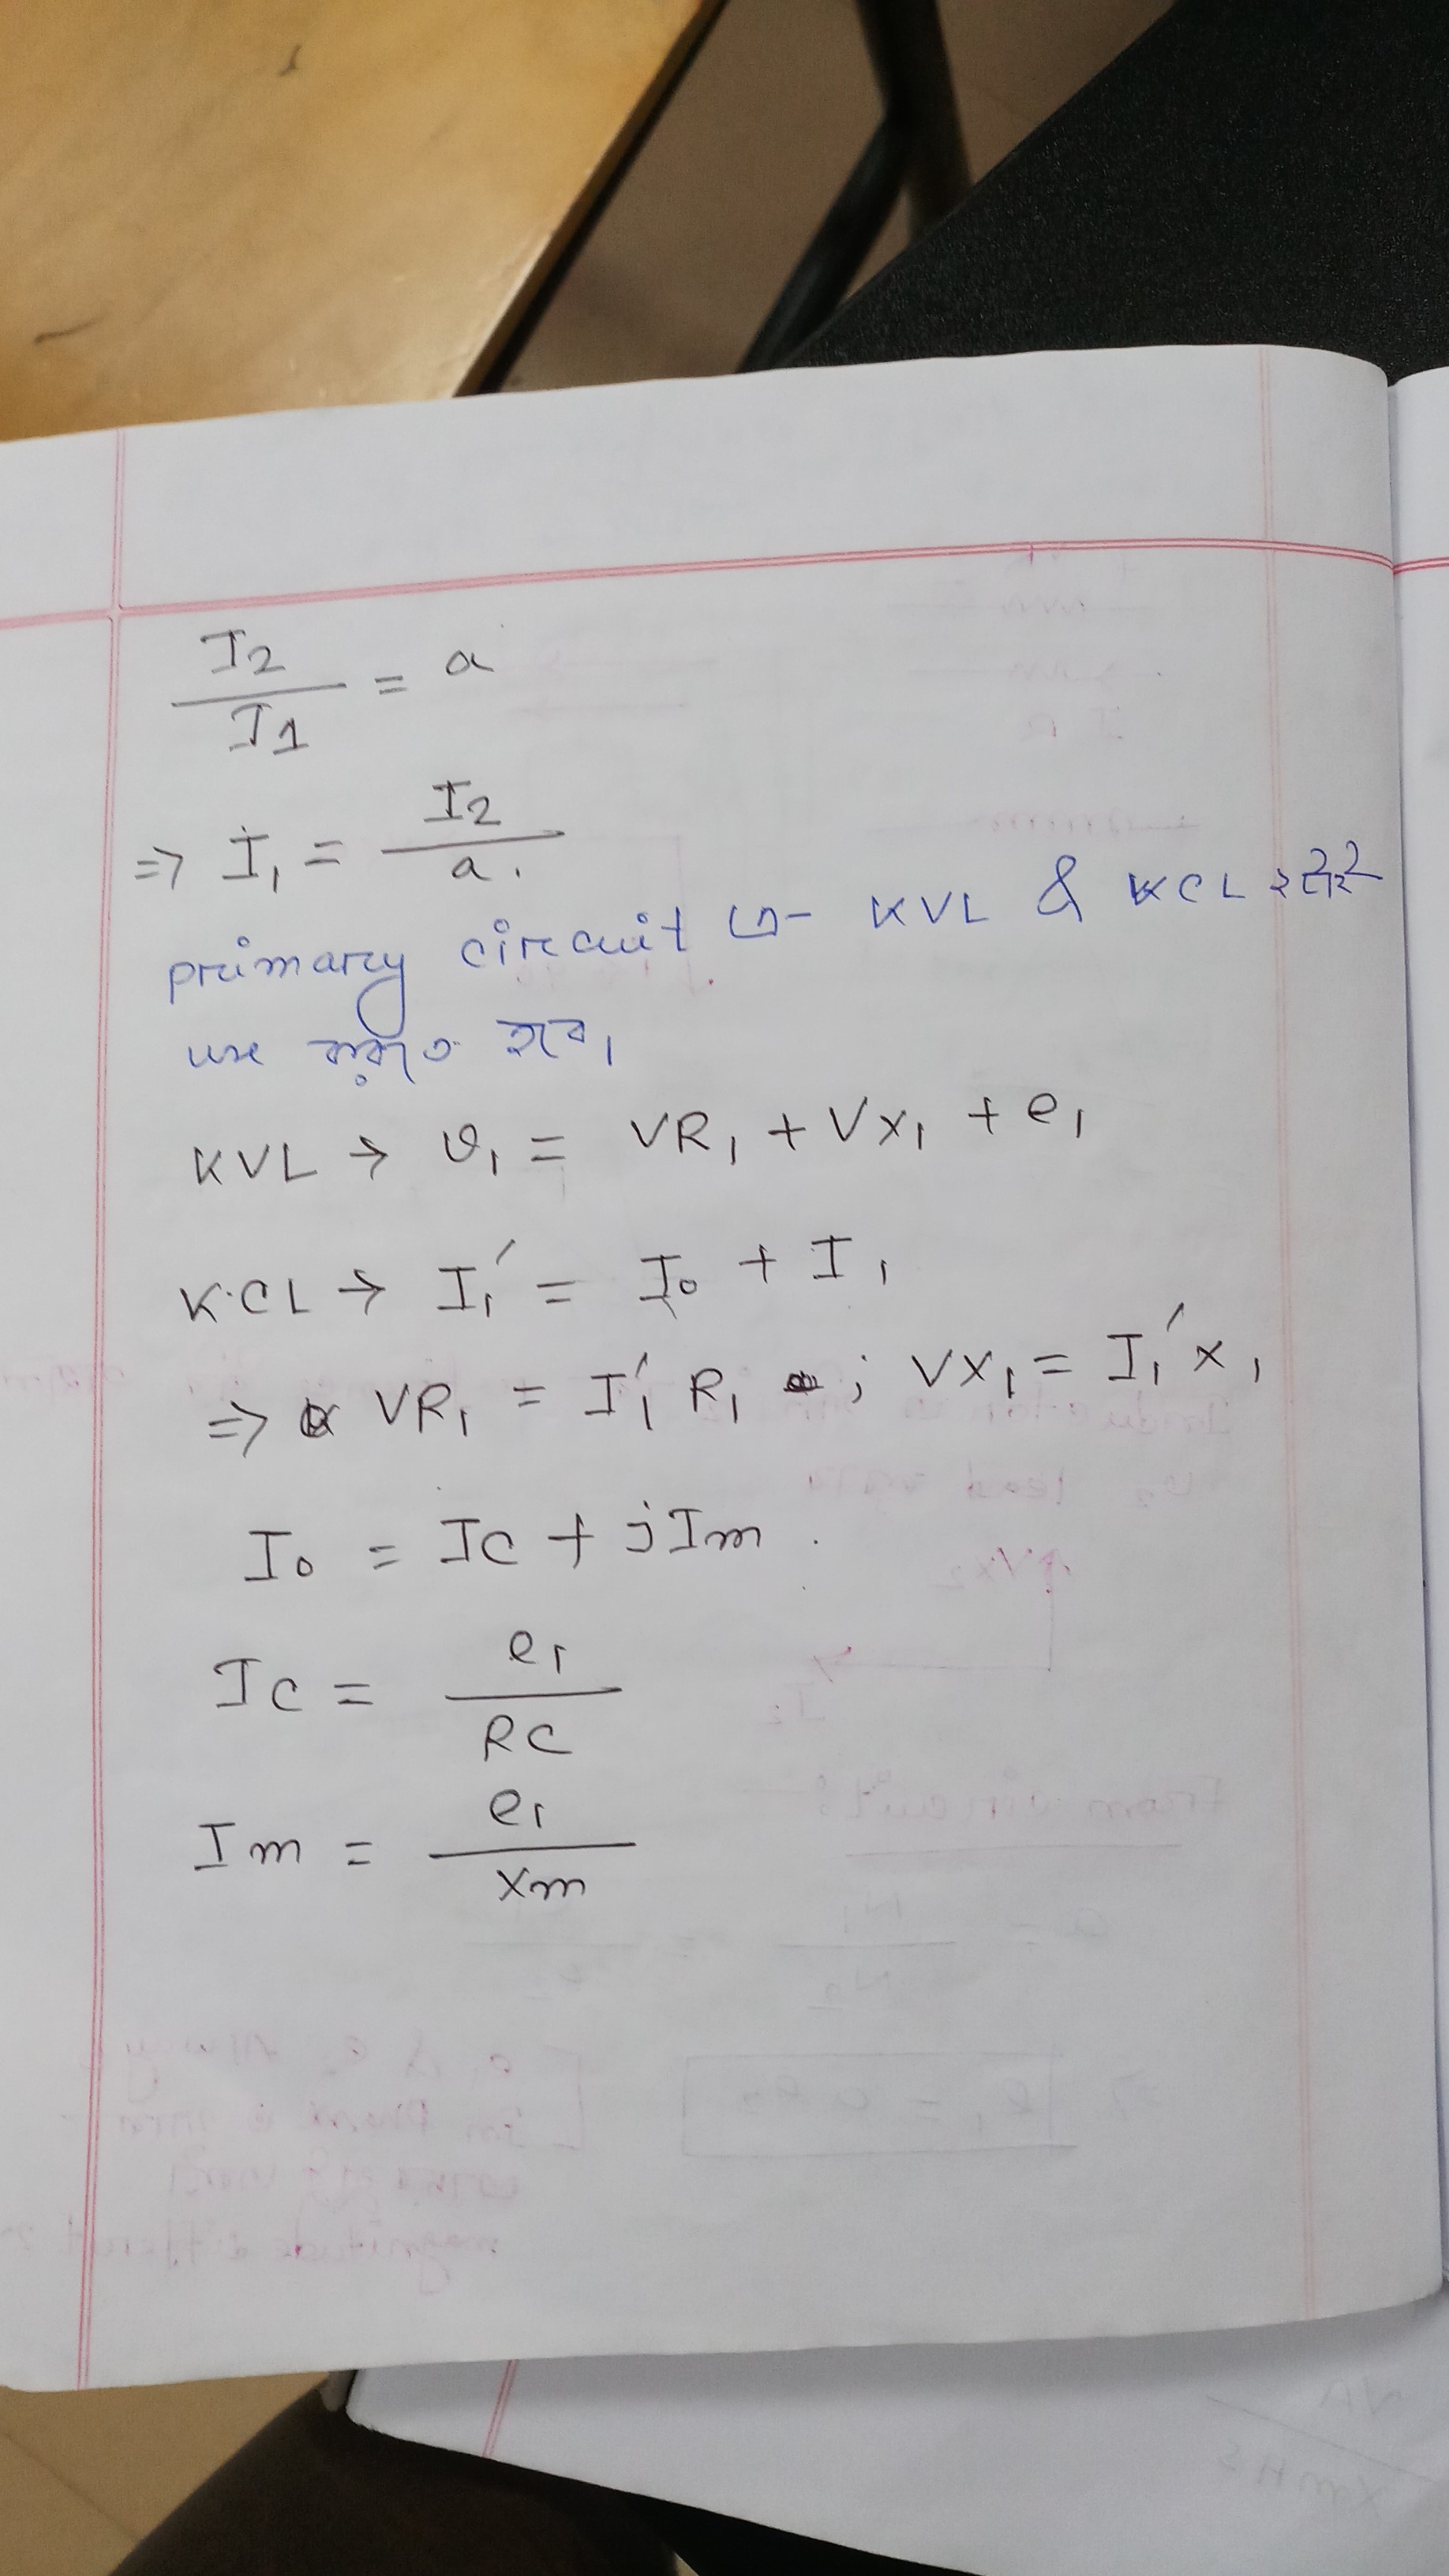 I2 / I1 = a
⇒ I₁ = I2 / a.
primary circuit এ KVL & KCL
use করতে হবে।
KVL → v₁ = VR₁ + VX₁ + e₁
KCL → I₁′ = I₀ + I₁
⇒ VR₁ = I₁′ R₁ ; VX₁ = I₁′ x₁
I₀ = Ic + jIm.
Ic = e₁ / RC
Im = e₁ / Xm